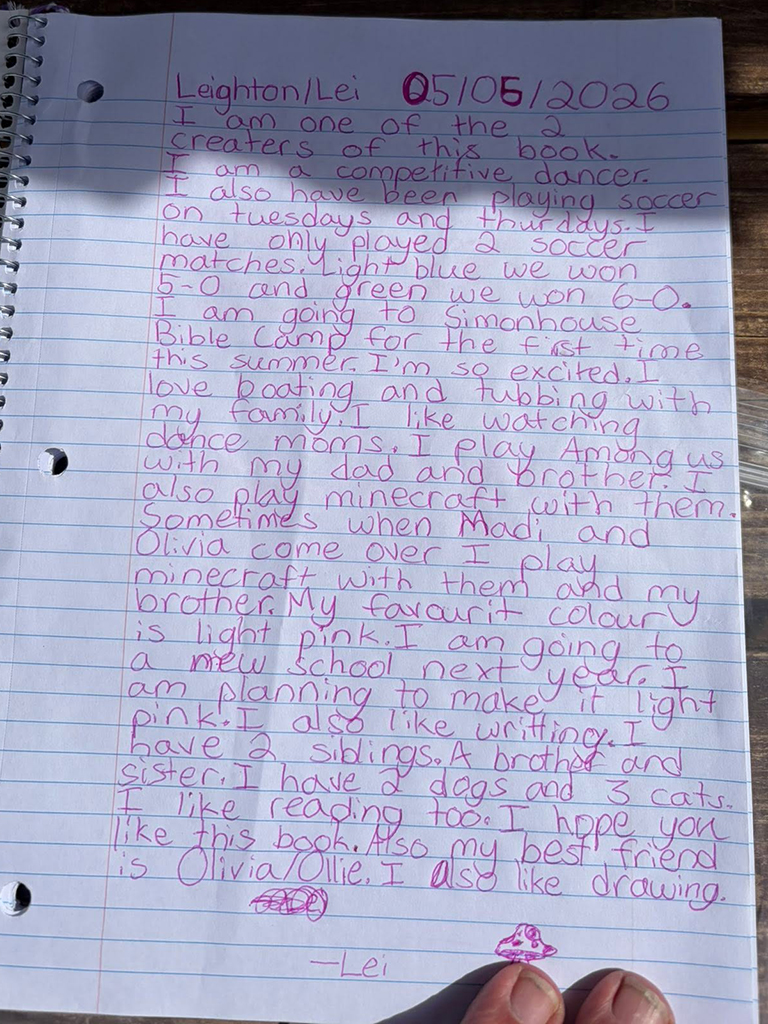 Leighton/Lei 05/05/2026
I am one of the 2
creaters of this book.
I am a competitive dancer.
I also have been playing soccer
on tuesdays and thurdays. I
have only played 2 soccer
matches. Light blue we won
5-0 and green we won 6-0.
I am going to Simonhouse
Bible Camp for the first time
this summer. I'm so excited. I
love boating and tubbing with
my family. I like watching
dance moms. I play Among us
with my dad and brother. I
also play minecraft with them.
Sometimes when Madi and
Olivia come over I play
minecraft with them and my
brother. My favourit colour
is light pink. I am going to
a new school next year. I
am planning to make it light
pink. I also like writting. I
have 2 siblings. A brother and
sister. I have 2 dogs and 3 cats.
I like reading too. I hope you
like this book. Also my best friend
is Olivia/Ollie. I also like drawing.
—Lei